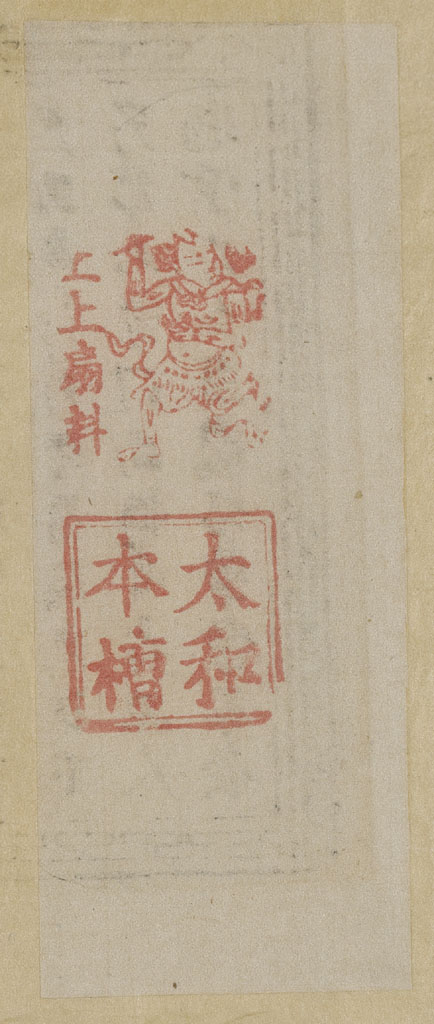 上上扇料
太和
本槽